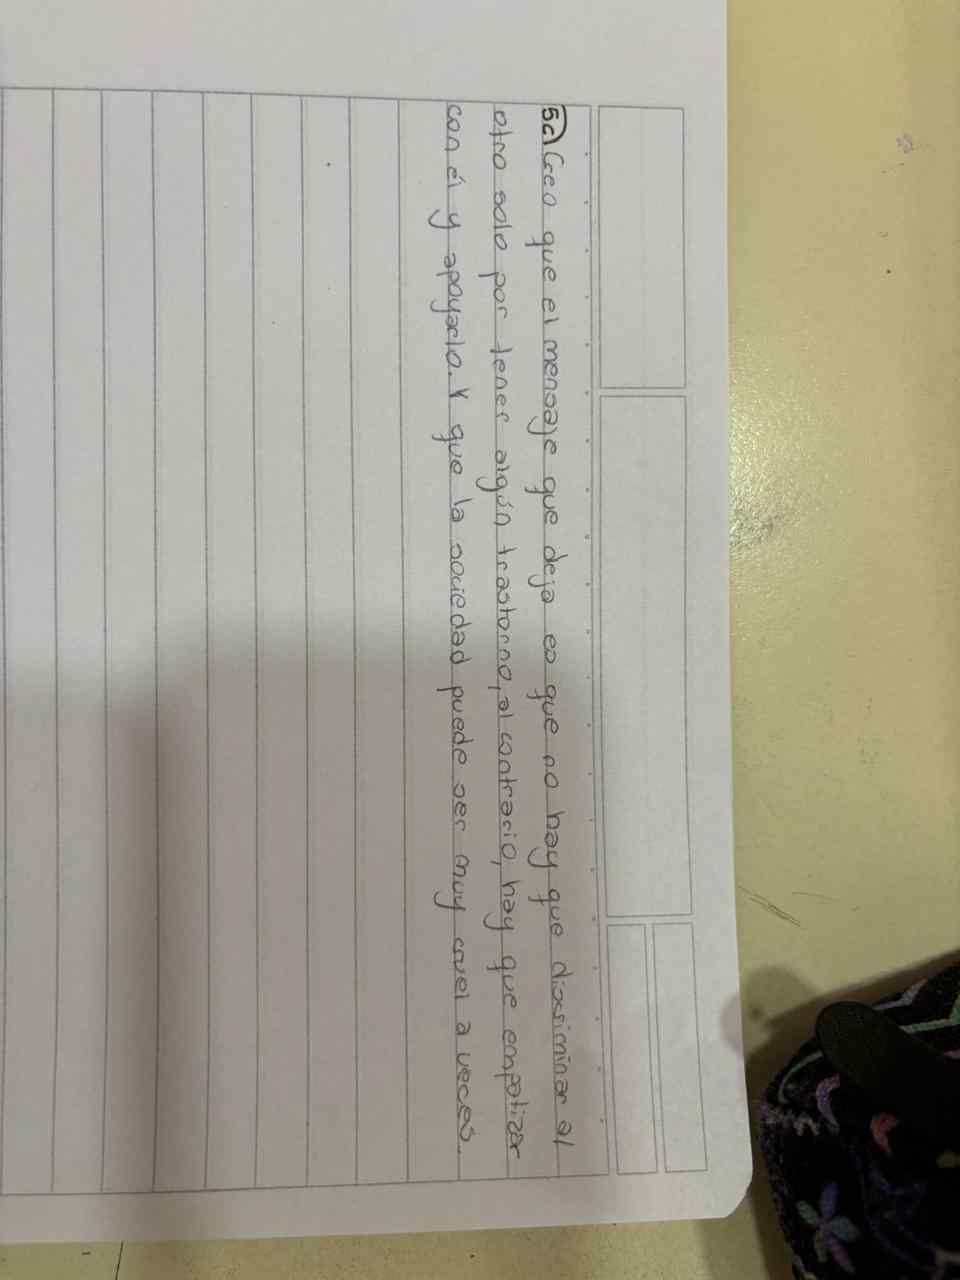 5c) Creo que el mensaje que deja es que no hay que discriminar al
otro solo por tener algún trastorno, al contrario, hay que empatizar
con él y apoyarlo. Y que la sociedad puede ser muy cruel a veces.